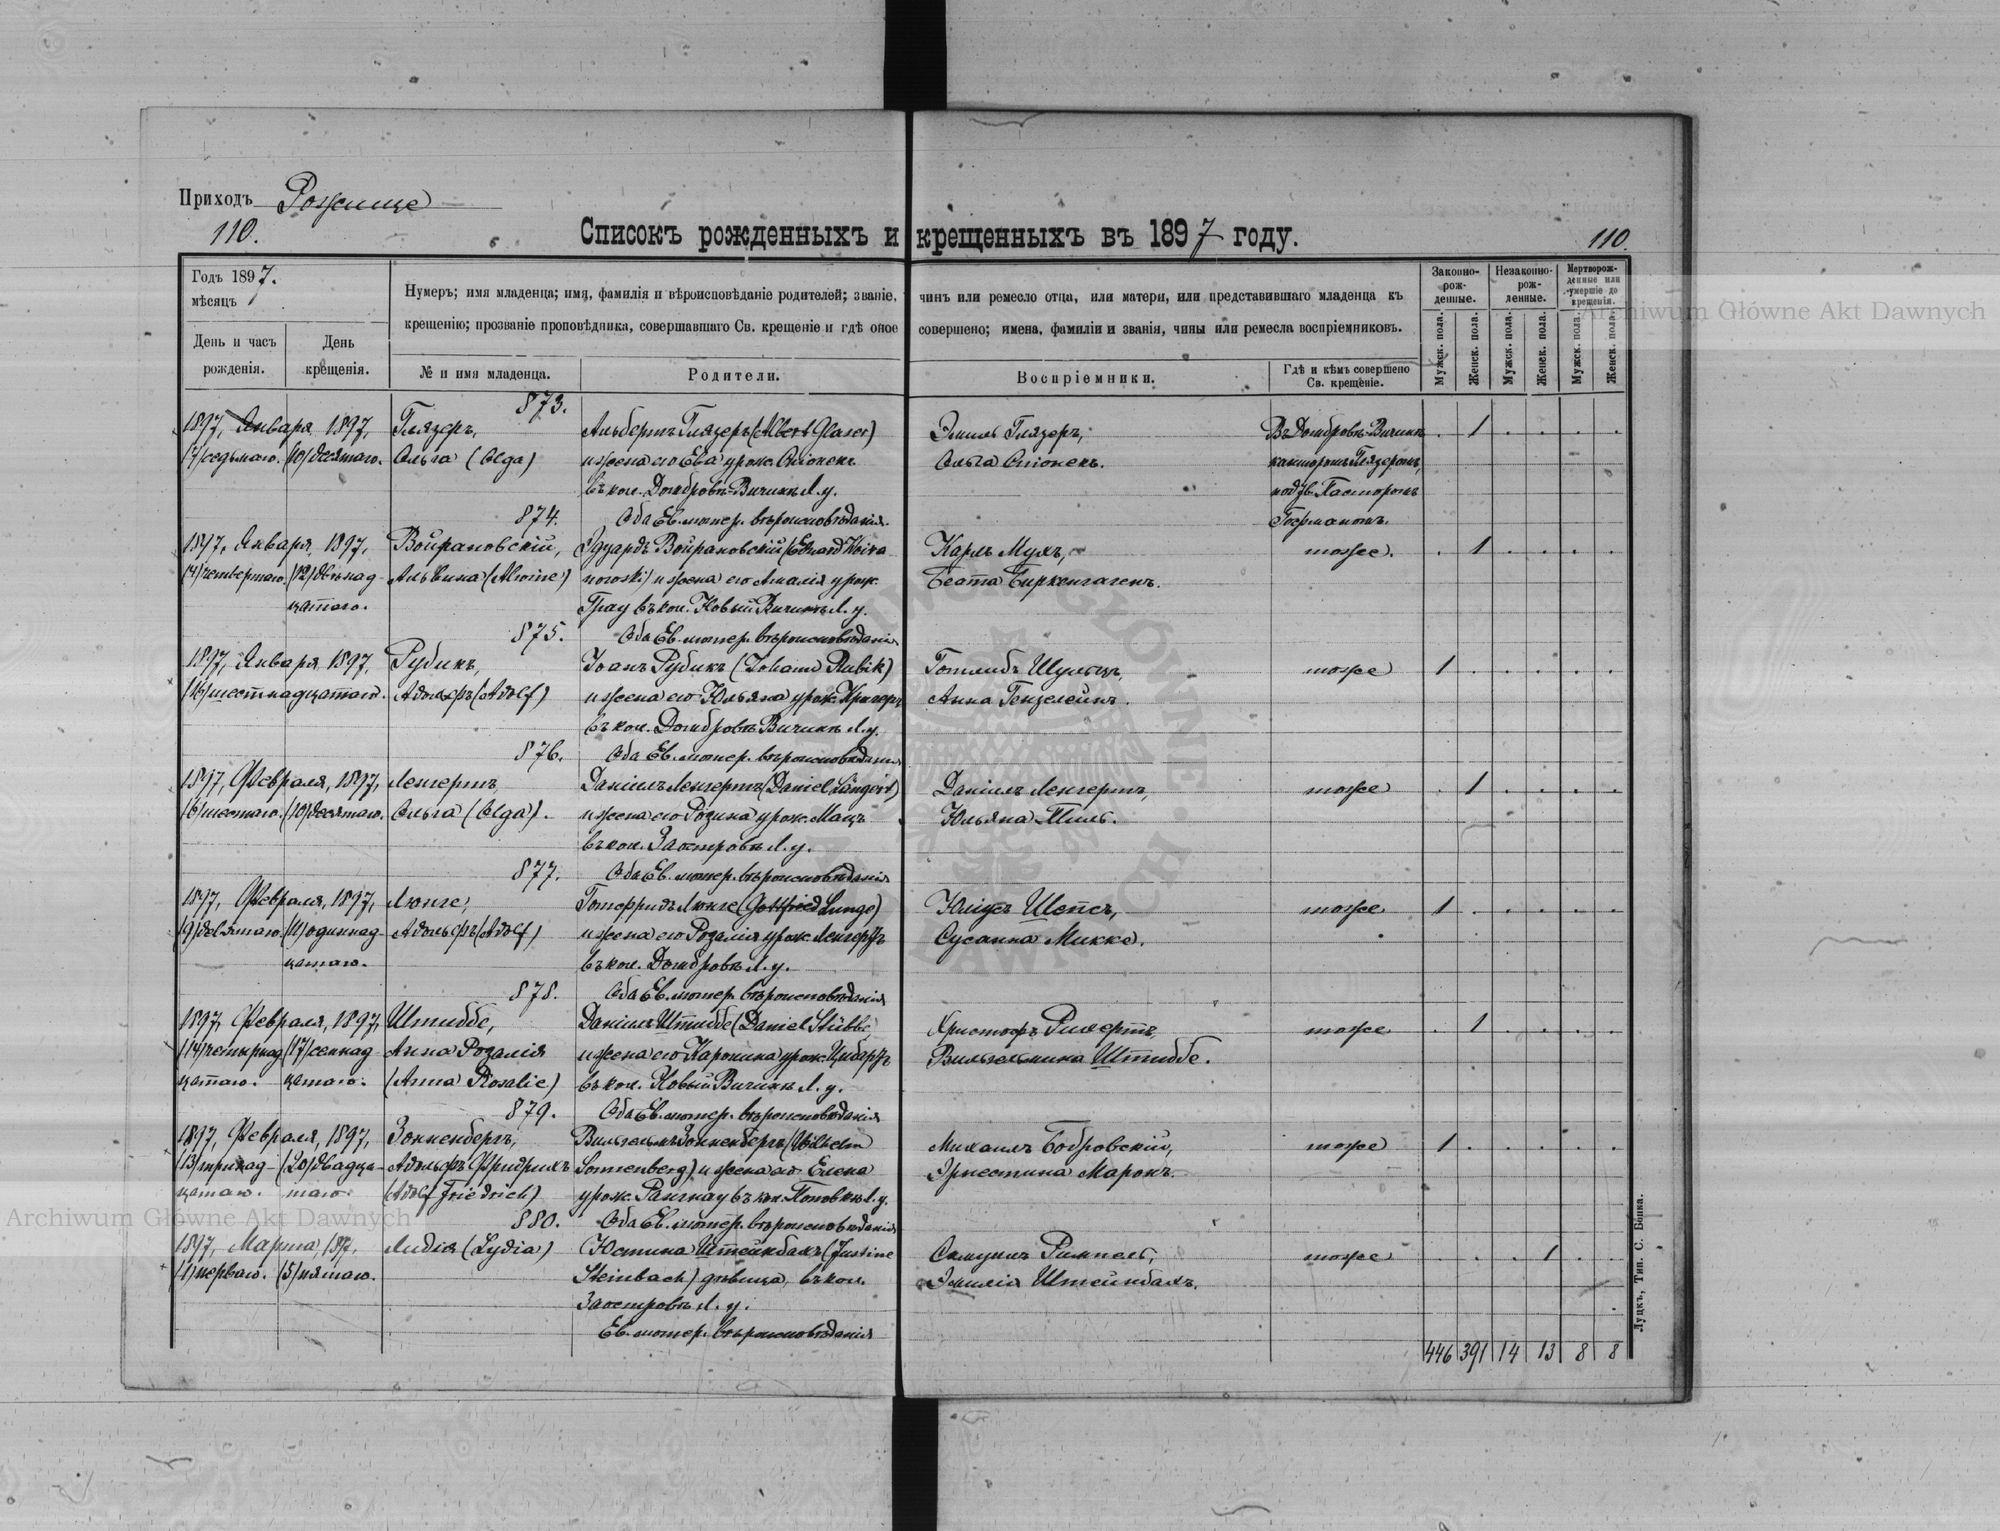 Приходъ Рожище
110.
Списокъ рожденныхъ и крещенныхъ въ 1897 году.
110.
Годъ 1897.
мѣсяцъ
День и часъ рожденія.
День крещенія.
Нумеръ; имя младенца; имя, фамилія и вѣроисповѣданіе родителей; званіе, чинъ или ремесло отца, или матери, или представившаго младенца къ
крещенію; прозваніе проповѣдника, совершавшаго Св. крещеніе и гдѣ оное совершено; имена, фамиліи и званія, чины или ремесла воспріемниковъ.
№ и имя младенца.
Родители.
Воспріемники.
Гдѣ и кѣмъ совершено Св. крещеніе.
Законно-рож-денные.
Незаконно-рож-денные.
Мертворож-денные или умершіе до крещенія.
Мужск. пола.
Женск. пола.
Мужск. пола.
Женск. пола.
Мужск. пола.
Женск. пола.
873.
1897, Января 1897, Глязеръ, Альбертъ Глязеръ (Albert Glaser) Эмиль Глязеръ, Въ Домбровѣ-Вичинѣ . 1 . . . .
(7) седьмаго. (10) десятаго. Ольга (Olga) и жена его Ева урож. Опіонекъ Ольга Опіонекъ. канторомъ Глязеромъ,
въ кол. Домбровѣ-Вичинѣ Л. у. подтв. Пасторомъ
874. Оба Ев. лютер. вѣроисповѣданія. Госрманомъ.
1897, Января, 1897, Войрановскій, Эдуардъ Войрановскій (Eduard Woira- Карлъ Мухъ, тоже. . 1 . . . .
(4) четвертаго. (12) двѣнад- Альвина (Alwine) nowski) и жена его Амалія урож. Беата Биркенгагенъ.
цатаго. Грау въ кол. Новый Вичинѣ Л. у.
875. Оба Ев. лютер. вѣроисповѣданія
1897, Января 1897, Рубикъ, Іоанъ Рубикъ (Johann Rubik) Готлибъ Шульцъ, тоже 1 . . . . .
(16) шестнадцатаго. Адольфъ (Adolf) и жена его Юльяна урож. Кригеръ Анна Гензелейнъ.
въ кол. Домбровѣ Вичинѣ Л. у.
876. Оба Ев. лютер. вѣроисповѣданія
1897, Февраля, 1897, Ленгертъ, Даніилъ Ленгертъ (Daniel Längert) Даніилъ Ленгертъ, тоже . 1 . . . .
(6) шестаго. (10) десятаго. Ольга (Olga). и жена его Розина урож. Мацъ Юльяна Тиль.
въ кол. Заостровѣ Л. у.
877. Оба Ев. лютер. вѣроисповѣданія
1897, Февраля, 1897, Люнге, Готфридъ Люнге (Gottfried Lunge) Юліусъ Шепсъ, тоже 1 . . . . .
(9) девятаго. (11) одиннад- Адольфъ (Adolf) и жена его Розалія урож. Ленгертъ Сусанна Микке.
цатаго. въ кол. Домбровѣ Л. у.
878. Оба Ев. лютер. вѣроисповѣданія
1897, Февраля, 1897, Штиббе, Даніилъ Штиббе (Daniel Stübbe Христофъ Рихертъ, тоже . 1 . . . .
(14) четырнад (17) семнад- Анна Розалія и жена его Каролина урож. Цибартъ Вильгельмина Штиббе.
цатаго. цатаго. (Anna Rosalie) въ кол. Новый Вичинѣ Л. у.
879. Оба Ев. лютер. вѣроисповѣданія
1897, Февраля, 1897, Зонненбергъ, Вильгельмъ Зонненбергъ (Wilhelm Михаилъ Бобровскій, тоже 1 . . . . .
(13) тринад- (20) двадца- Адольфъ Фридрихъ Sonnenberg) и жена его Елена Эрнестина Марокъ.
цатаго. таго (Adolf Friedrich) урож. Рангнау въ кол. Поповкѣ Л. у.
880. Оба Ев. лютер. вѣроисповѣданія
1897, Марта, 1897, Лидія (Lydia) Юстина Штейнбахъ (Justine Самуилъ Римпель, тоже . . . 1 . .
(1) перваго. (5) пятаго. Steinbach) дѣвица, въ кол. Эмилія Штейнбахъ.
Заостровѣ Л. у.
Ев. лютер. вѣроисповѣданія
446 391 14 13 8 8
Луцкъ, Тип. С. Бонка.
Archiwum Główne Akt Dawnych
Archiwum Główne Akt Dawnych